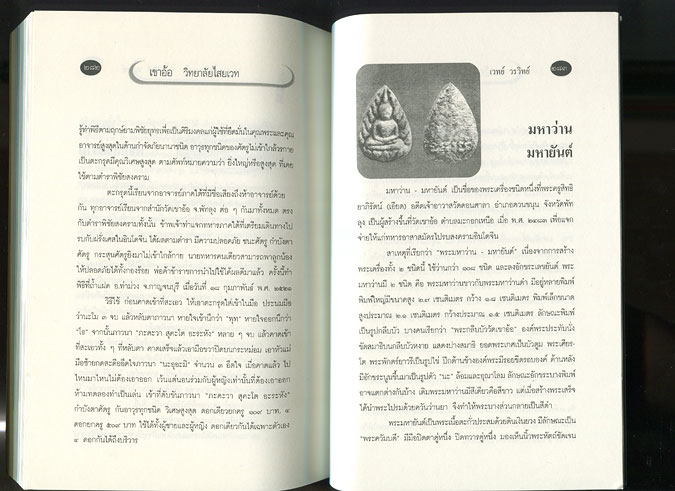 ๒๘๒
เขาอ้อ วิทยาลัยไสยเวท
รู้ทำพิธีตามฤกษ์ยามพิชัยยุทธเพื่อเป็นศิริมงคลแก่ผู้ใช้ที่ยึดมั่นในคุณพระและคุณ
อาจารย์สูงสุดในด้านกำจัดภัยนานาชนิด อาวุธทุกชนิดของศัตรูไม่เข้าใกล้วรกาย
เป็นตะกรุดมีคุณวิเศษสูงสุด ตามศัพท์หมายความว่า ยิ่งใหญ่หรือสูงสุด ที่เคย
ใช้ตามตำราพิชัยสงคราม
ตะกรุดนี้เรียนจากอาจารย์ภาคใต้ที่มีชื่อเสียงถึงห้าอาจารย์ด้วย
กัน ทุกอาจารย์เรียนจากสำนักวัดเขาอ้อ จ.พัทลุง ต่อ ๆ กันมาทั้งหมด ตรง
กับตำราพิชัยสงครามทั้งนั้น ข้าพเจ้าทำแจกทหารภาคใต้ที่เตรียมเดินทางไป
รบกับฝรั่งเศสในอินโดจีน ได้ผลตามตำรา มีความปลอดภัย ชนะศัตรู กำบังตา
ศัตรู กระสุนศัตรูยิงมาไม่เข้าใกล้กาย นายทหารคนเดียวสามารถพาลูกน้อง
ให้ปลอดภัยได้ทั้งกองร้อย พ่อค้าข้าราชการนำไปใช้ได้ผลดีมาแล้ว ครั้งนี้ทำ
พิธีที่ถ้ำแฝด อ.ท่าม่วง จ.กาญจนบุรี เมื่อวันที่ ๑๘ กุมภาพันธ์ พ.ศ. ๒๕๒๑
วิธีใช้ ก่อนคาดเข้าที่สะเอว ให้เอาตะกรุดใส่เข้าในมือ ประนมมือ
ว่านะโม ๓ จบ แล้วหลับตาภาวนา หายใจเข้านึกว่า "พุท" หายใจออกนึกว่า
"โธ" จากนั้นภาวนา "ภะคะวา สุคะโต อะระหัง" หลาย ๆ จบ แล้วคาดเข้า
ที่สะเอวทั้ง ๆ ที่หลับตา คาดเสร็จแล้วเอามือขวาปิดบนกระหม่อม เอาหัวแม่
มือซ้ายกดสะดือยืดใจภาวนา "นะอุอะมิ" จำนวน ๓ อึดใจ เมื่อคาดแล้ว ไป
ไหนมาไหนไม่ต้องเอาออก เว้นแต่นอนร่วมกับผู้หญิงเท่านั้นที่ต้องเอาออก
ห้ามทดลองทำเป็นเล่น เข้าที่คับขันภาวนา "ภะคะวา สุคะโต อะระหัง"
กำบังตาศัตรู กันอาวุธทุกชนิด วิเศษสูงสุด
๔ ดอกกันได้ถึงบริวาร
เวทย์ วรวิทย์
๒๘๓
มหาว่าน
มหายันต์
มหาว่าน - มหายันต์ เป็นชื่อของพระเครื่องชนิดหนึ่งที่พระครูสิทธิ
ยาภิรัตน์ (เอียด) อดีตเจ้าอาวาสวัดดอนศาลา อำเภอควนขนุน จังหวัดพัท
ลุง เป็นผู้สร้างขึ้นที่วัดเขาอ้อ ตำบลมะกอกเหนือ เมื่อ พ.ศ. ๒๔๘๓ เพื่อแจก
จ่ายให้แก่ทหารอาสาสมัครไปรบสงครามอินโดจีน
สาเหตุที่เรียกว่า "พระมหาว่าน - มหายันต์" เนื่องจากการสร้าง
พระเครื่องทั้ง ๒ ชนิดนี้ ใช้ว่านกว่า ๑๐๘ ชนิด และลงอักขระเลขยันต์ พระ
มหาว่านมี ๒ ชนิด คือ พระมหาว่านขาวกับพระมหาว่านดำ มีอยู่หลายพิมพ์
พิมพ์ใหญ่มีขนาดสูง ๒.๗ เซนติเมตร กว้าง ๑.๘ เซนติเมตร พิมพ์เล็กขนาด
สูงประมาณ ๒.๑ เซนติเมตร กว้างประมาณ ๑.๕ เซนติเมตร ลักษณะพิมพ์
เป็นรูปกลีบบัว บางคนเรียกว่า "พระกลีบบัววัดเขาอ้อ" องค์พระประทับนั่ง
ขัดสมาธิบนกลีบบัวหงาย แสดงปางสมาธิ ยอดพระเกศเป็นบัวตูม พระเศียร
โต พระพักตร์ยาวรีเป็นรูปไข่ ปีกด้านข้างองค์พระมีรอยขีดรอบองค์ ด้านหลัง
มีอักขระนูนขึ้นมาเป็นรูปตัว "นะ" ล้อมและอุณาโลม ลักษณะอักขระบางพิมพ์
อาจแตกต่างกันบ้าง เดิมพระมหาว่านมีสีเดียวคือสีขาว แต่เมื่อสร้างพระเสร็จ
ได้นำพระไปรมด้วยควันว่านยา จึงทำให้พระบางส่วนกลายเป็นสีดำ
พระมหายันต์เป็นพระเนื้อตะกั่วประสมด้วยดินเงินยวง มีลักษณะเป็น
"พระควัมบดี" มีมือปิดตาคู่หนึ่ง ปิดทวารคู่หนึ่ง มองเห็นนิ้วพระหัตถ์ชัดเจน